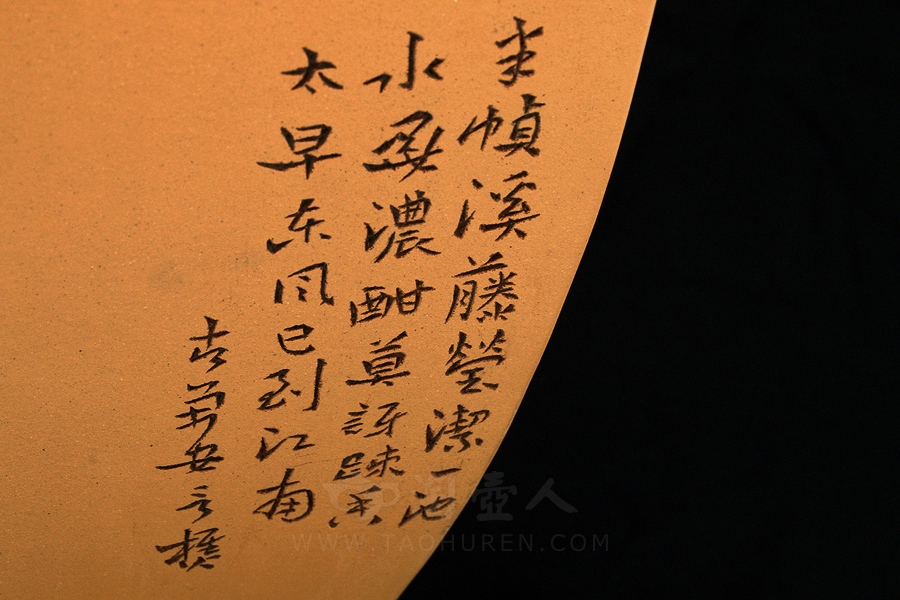 半幀溪藤瑩潔一池
水墨濃酣莫訝疎香
太早东风已到江南
古安言樵
淘壺人
WWW.TAOHUREN.COM